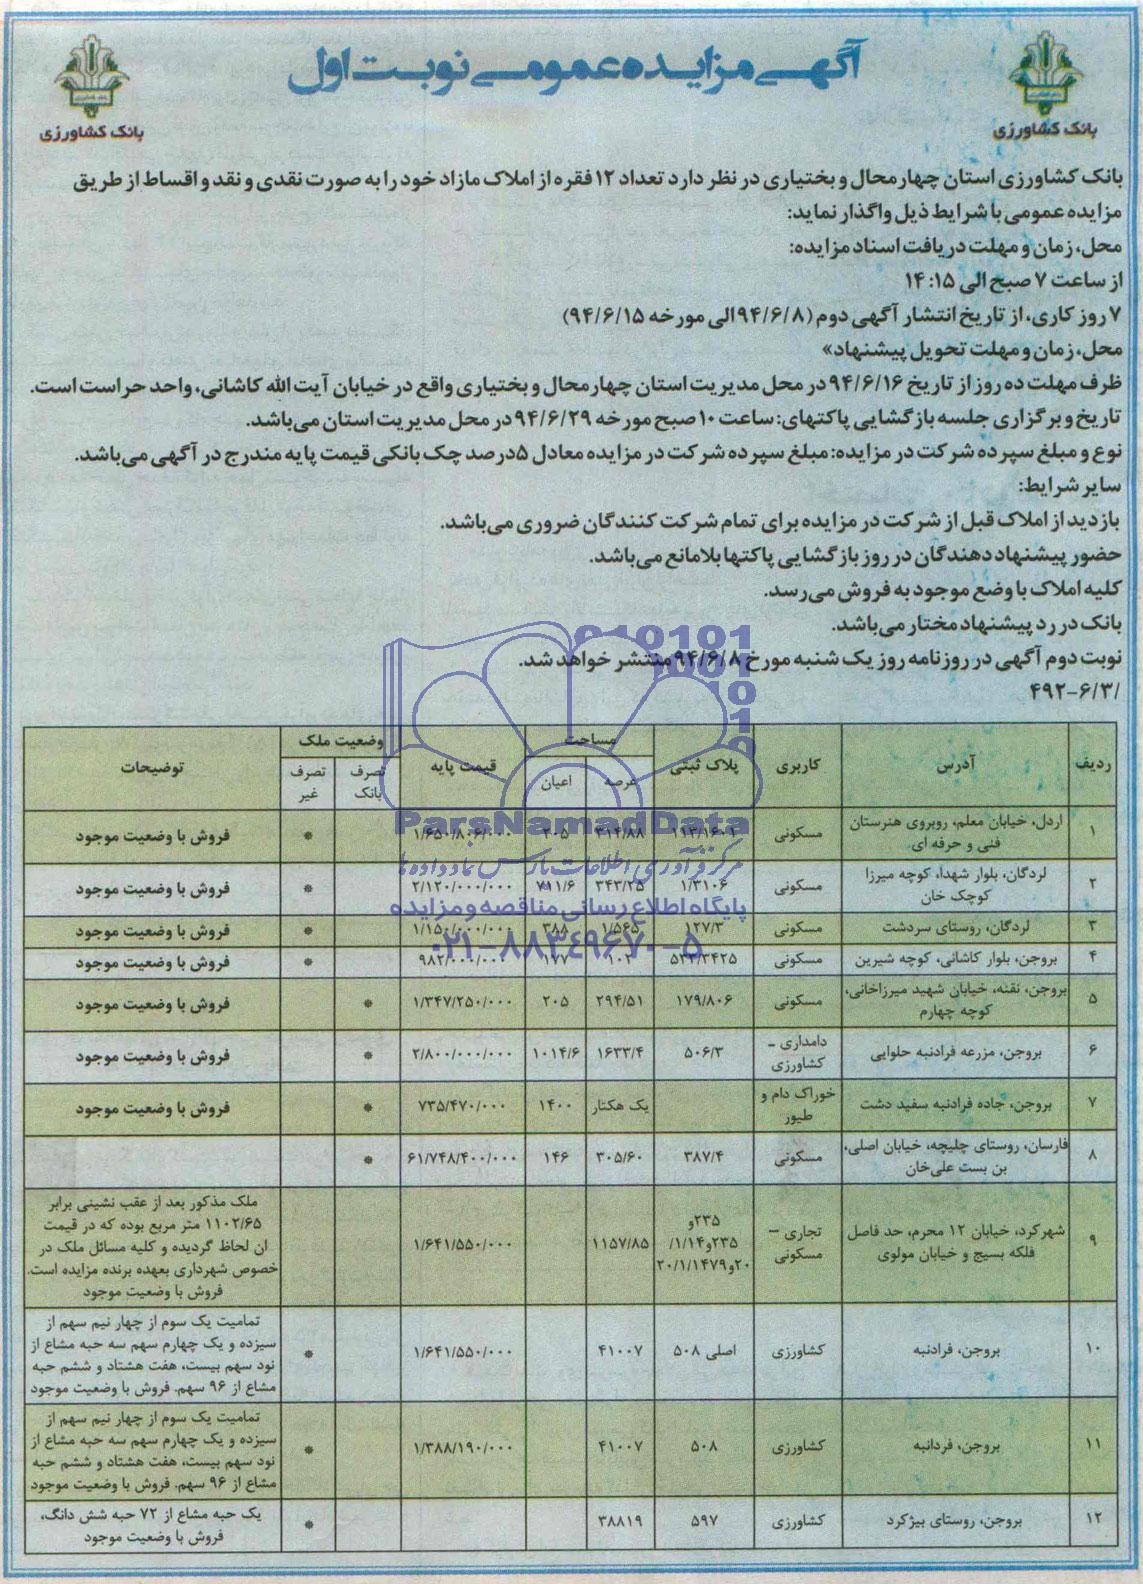 آگهی مزایده عمومی نوبت اول
بانک کشاورزی
بانک کشاورزی
بانک کشاورزی استان چهارمحال و بختیاری در نظر دارد تعداد ۱۲ فقره از املاک مازاد خود را به صورت نقدی و نقد و اقساط از طریق
مزایده عمومی با شرایط ذیل واگذار نماید:
محل، زمان و مهلت دریافت اسناد مزایده:
از ساعت ۷ صبح الی ۱۴:۱۵
۷ روز کاری، از تاریخ انتشار آگهی دوم (۹۴/۶/۸ الی مورخه ۹۴/۶/۱۵)
محل، زمان و مهلت تحویل پیشنهاد»
ظرف مهلت ده روز از تاریخ ۹۴/۶/۱۶ در محل مدیریت استان چهارمحال و بختیاری واقع در خیابان آیت الله کاشانی، واحد حراست است.
تاریخ و برگزاری جلسه بازگشایی پاکتهای: ساعت ۱۰ صبح مورخه ۹۴/۶/۲۹ در محل مدیریت استان می‌باشد.
نوع و مبلغ سپرده شرکت در مزایده: مبلغ سپرده شرکت در مزایده معادل ۵ درصد چک بانکی قیمت پایه مندرج در آگهی می‌باشد.
سایر شرایط:
بازدید از املاک قبل از شرکت در مزایده برای تمام شرکت کنندگان ضروری می‌باشد.
حضور پیشنهاد دهندگان در روز بازگشایی پاکتها بلامانع می‌باشد.
کلیه املاک با وضع موجود به فروش می‌رسد.
بانک در رد پیشنهاد مختار می‌باشد.
نوبت دوم آگهی در روزنامه روز یک شنبه مورخ ۹۴/۶/۸ منتشر خواهد شد.
۴۹۲-۶/۳/
ParsNamadData
مرکز فرآوری اطلاعات پارس نماد داده‌ها
پایگاه اطلاع رسانی مناقصه و مزایده
۰۲۱-۸۸۳۴۹۶۷۰-۵
ردیف آدرس کاربری پلاک ثبتی مساحت قیمت پایه وضعیت ملک توضیحات
عرصه اعیان تصرف بانک تصرف غیر
۱ اردل، خیابان معلم، روبروی هنرستان مسکونی ۱۱۳/۱۶۰۱ ۳۱۴/۸۸ ۲۰۵ ۱/۶۵۰/۸۰۶/۰۰۰ * فروش با وضعیت موجود
فنی و حرفه ای
۲ لردگان، بلوار شهدا، کوچه میرزا مسکونی ۱/۳۱۰۶ ۳۴۳/۲۵ ۷۱۱/۶ ۲/۱۲۰/۰۰۰/۰۰۰ * فروش با وضعیت موجود
کوچک خان
۳ لردگان، روستای سردشت مسکونی ۱۲۷/۳ ۱/۵۶۵ ۳۸۸ ۱/۱۵۰/۰۰۰/۰۰۰ * فروش با وضعیت موجود
۴ بروجن، بلوار کاشانی، کوچه شیرین مسکونی ۱۰۲ ۱۷۷ ۹۸۲/۰۰۰/۰۰۰ * فروش با وضعیت موجود
۵ بروجن، نقنه، خیابان شهید میرزاخانی، مسکونی ۱۷۹/۸۰۶ ۲۹۴/۵۱ ۲۰۵ ۱/۳۴۷/۲۵۰/۰۰۰ * فروش با وضعیت موجود
کوچه چهارم
۶ بروجن، مزرعه فرادنبه حلوایی دامداری – کشاورزی ۵۰۶/۳ ۱۶۳۳/۴ ۱۰۱۴/۶ ۲/۸۰۰/۰۰۰/۰۰۰ * فروش با وضعیت موجود
۷ بروجن، جاده فرادنبه سفید دشت خوراک دام و طیور یک هکتار ۱۴۰۰ ۷۳۵/۴۷۰/۰۰۰ * فروش با وضعیت موجود
۸ فارسان، روستای چلیچه، خیابان اصلی، مسکونی ۳۸۷/۴ ۳۰۵/۶۰ ۱۴۶ ۶۱/۷۴۸/۴۰۰/۰۰۰ *
بن بست علی‌خان
۹ شهرکرد، خیابان ۱۲ محرم، حد فاصل فلکه بسیج و خیابان مولوی تجاری – مسکونی ۲۳۵و
۲۳۵و۱/۱۴/
۲۰و۲۰/۱/۱۴۷۹ ۱۱۵۷/۸۵ ۱/۶۴۱/۵۵۰/۰۰۰
ملک مذکور بعد از عقب نشینی برابر
۱۱۰۲/۶۵ متر مربع بوده که در قیمت
ان لحاظ گردیده و کلیه مسائل ملک در
خصوص شهرداری بعهده برنده مزایده است.
فروش با وضعیت موجود
۱۰ بروجن، فرادنبه کشاورزی اصلی ۵۰۸ ۴۱۰۰۷ ۱/۶۴۱/۵۵۰/۰۰۰ *
تمامیت یک سوم از چهار نیم سهم از
سیزده و یک چهارم سهم سه حبه مشاع از
نود سهم بیست، هفت هشتاد و ششم حبه
مشاع از ۹۶ سهم. فروش با وضعیت موجود
۱۱ بروجن، فردانبه کشاورزی ۵۰۸ ۴۱۰۰۷ ۱/۳۸۸/۱۹۰/۰۰۰ *
تمامیت یک سوم از چهار نیم سهم از
سیزده و یک چهارم سهم سه حبه مشاع از
نود سهم بیست، هفت هشتاد و ششم حبه
مشاع از ۹۶ سهم. فروش با وضعیت موجود
۱۲ بروجن، روستای بیژکرد کشاورزی ۵۹۷ ۳۸۸۱۹ *
یک حبه مشاع از ۷۲ حبه شش دانگ،
فروش با وضعیت موجود